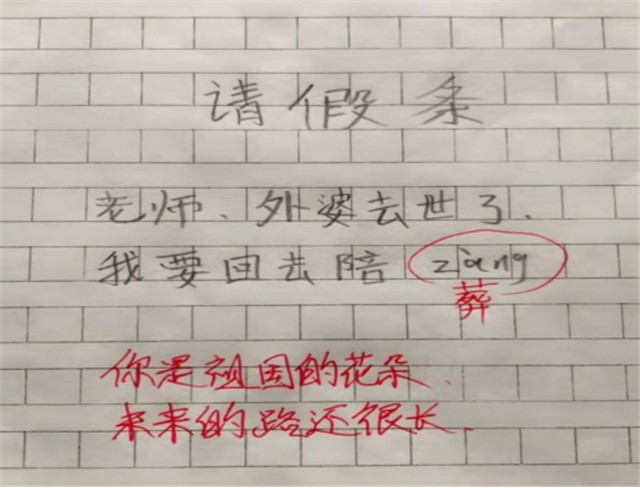 请假条
老师、外婆去世了、
我要回去陪zàng
葬
你是祖国的花朵、
未来的路还很长、